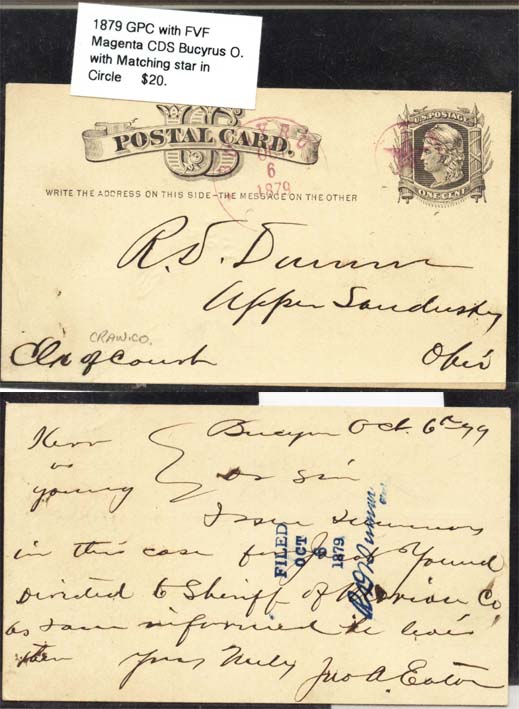 1879 GPC with FVF
Magenta CDS Bucyrus O.
with Matching star in
Circle $20.
U.S. POSTAGE
POSTAL CARD.
US
OCT
6
1879
ONE CENT
WRITE THE ADDRESS ON THIS SIDE-THE MESSAGE ON THE OTHER
Upper Sandusky
CRAW.CO.
Clk of Court Ohio
Bucyrus Oct. 6th 79
Kerr
vs
Young
Dr Sir
Issue summons
in this case for Jacob Young
Directed to Sheriff of Marion Co
as I am informed he lives
there Yours Truly Jno A. Eaton
FILED
OCT
6
1879